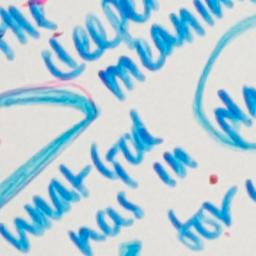 The deeper
meaning
what God
has in
for